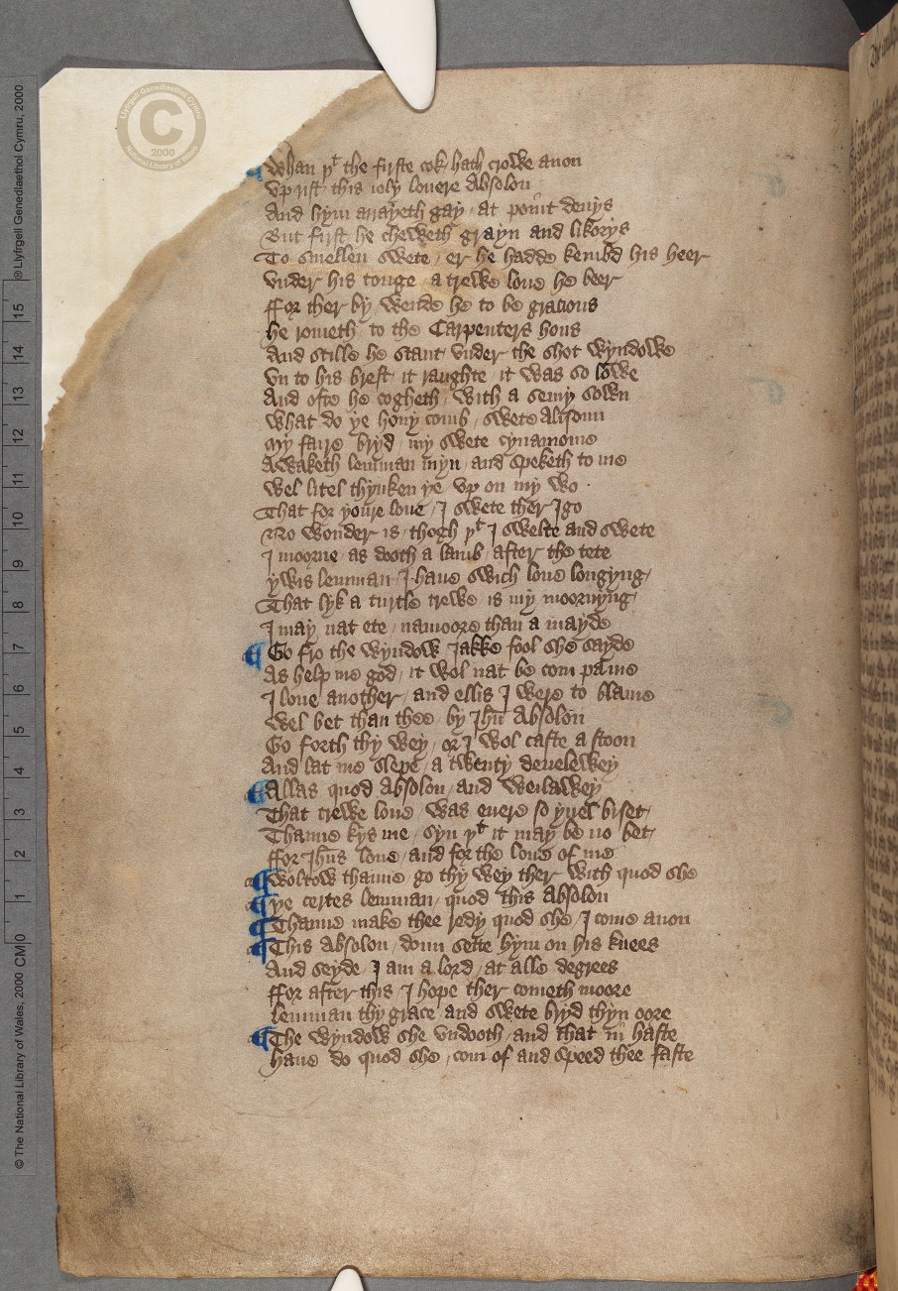 Whan þt the firste cok hath crowe anon
Vp rist this ioly louere Absolon
And hym arrayeth gay / at point deuys
But first he cheweth grayn and likorys
To smellen swete / er he hadde kembd his heer
Vnder his tonge / a trewe loue he beer
ffor ther by / wende he to be gracious
He rometh to the Carpenters hous
And stille he stant / vnder the shot wyndowe
Vn to his brest / it raughte / it was so lowe
And ofte he cogheth / with a semy sown
What do ye hony comb / swete Alisoun
My faire bryd / my swete cynamome
Awaketh lemman myn / and speketh to me
Wel litel thynken ye vp on my wo
That for youre loue / I swete ther I go
No wonder is / thogh þt I swelte and swete
I moorne / as dooth a lamb / after the tete
ywis lemman / I haue swich loue longyng /
That lyk a turtle trewe is my moornyng
I may nat ete / namoore than a mayde
¶ Go fro the wyndow Jakke fool she sayde
As help me god / it wol nat be com pa me
I loue another / and ellis I were to blame
Wel bet than thee / by Ihu Absolon
Go forth thy wey / or I wol caste a stoon
And lat me slepe / a twenty deuelewey
¶ Allas quod Absolon / and weilawey
That trewe loue / was euere so yuel biset
Thanne kys me / syn þt it may be no bet
ffor Ihus loue / and for the loue of me
¶ Woltow thanne / go thy wey ther with quod she
¶ ye certes lemman / quod this Absolon
¶ Thanne make thee redy quod she / I come anon
¶ This Absolon / doun sette hym on his knees
And seyde / I am a lord / at alle degrees
ffor after this I hope ther cometh moore
lemman thy grace and swete bryd thyn oore
¶ The wyndow she vndooth / and that in haste
Haue do quod she / com of and speed thee faste
Llyfrgell Genedlaethol Cymru
C
2000
National Library of Wales
© Llyfrgell Genedlaethol Cymru, 2000
15
14
13
12
11
10
9
8
7
6
5
4
3
2
1
CM 0
© The National Library of Wales, 2000